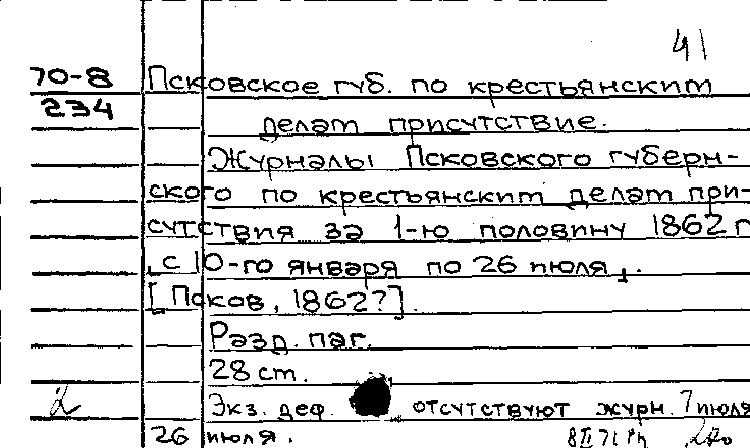 41
70-8 Псковское губ. по крестьянским
234
делам присутствие.
Журналы Псковского губерн-
ского по крестьянским делам при-
сутствия за 1-ю половину 1862 г
с 10-го января по 26 июля.
[Псков, 1862?].
Разд. паг.
28 ст.
2 Экз. деф. отсутствуют журн. 7 июля
26 июля.